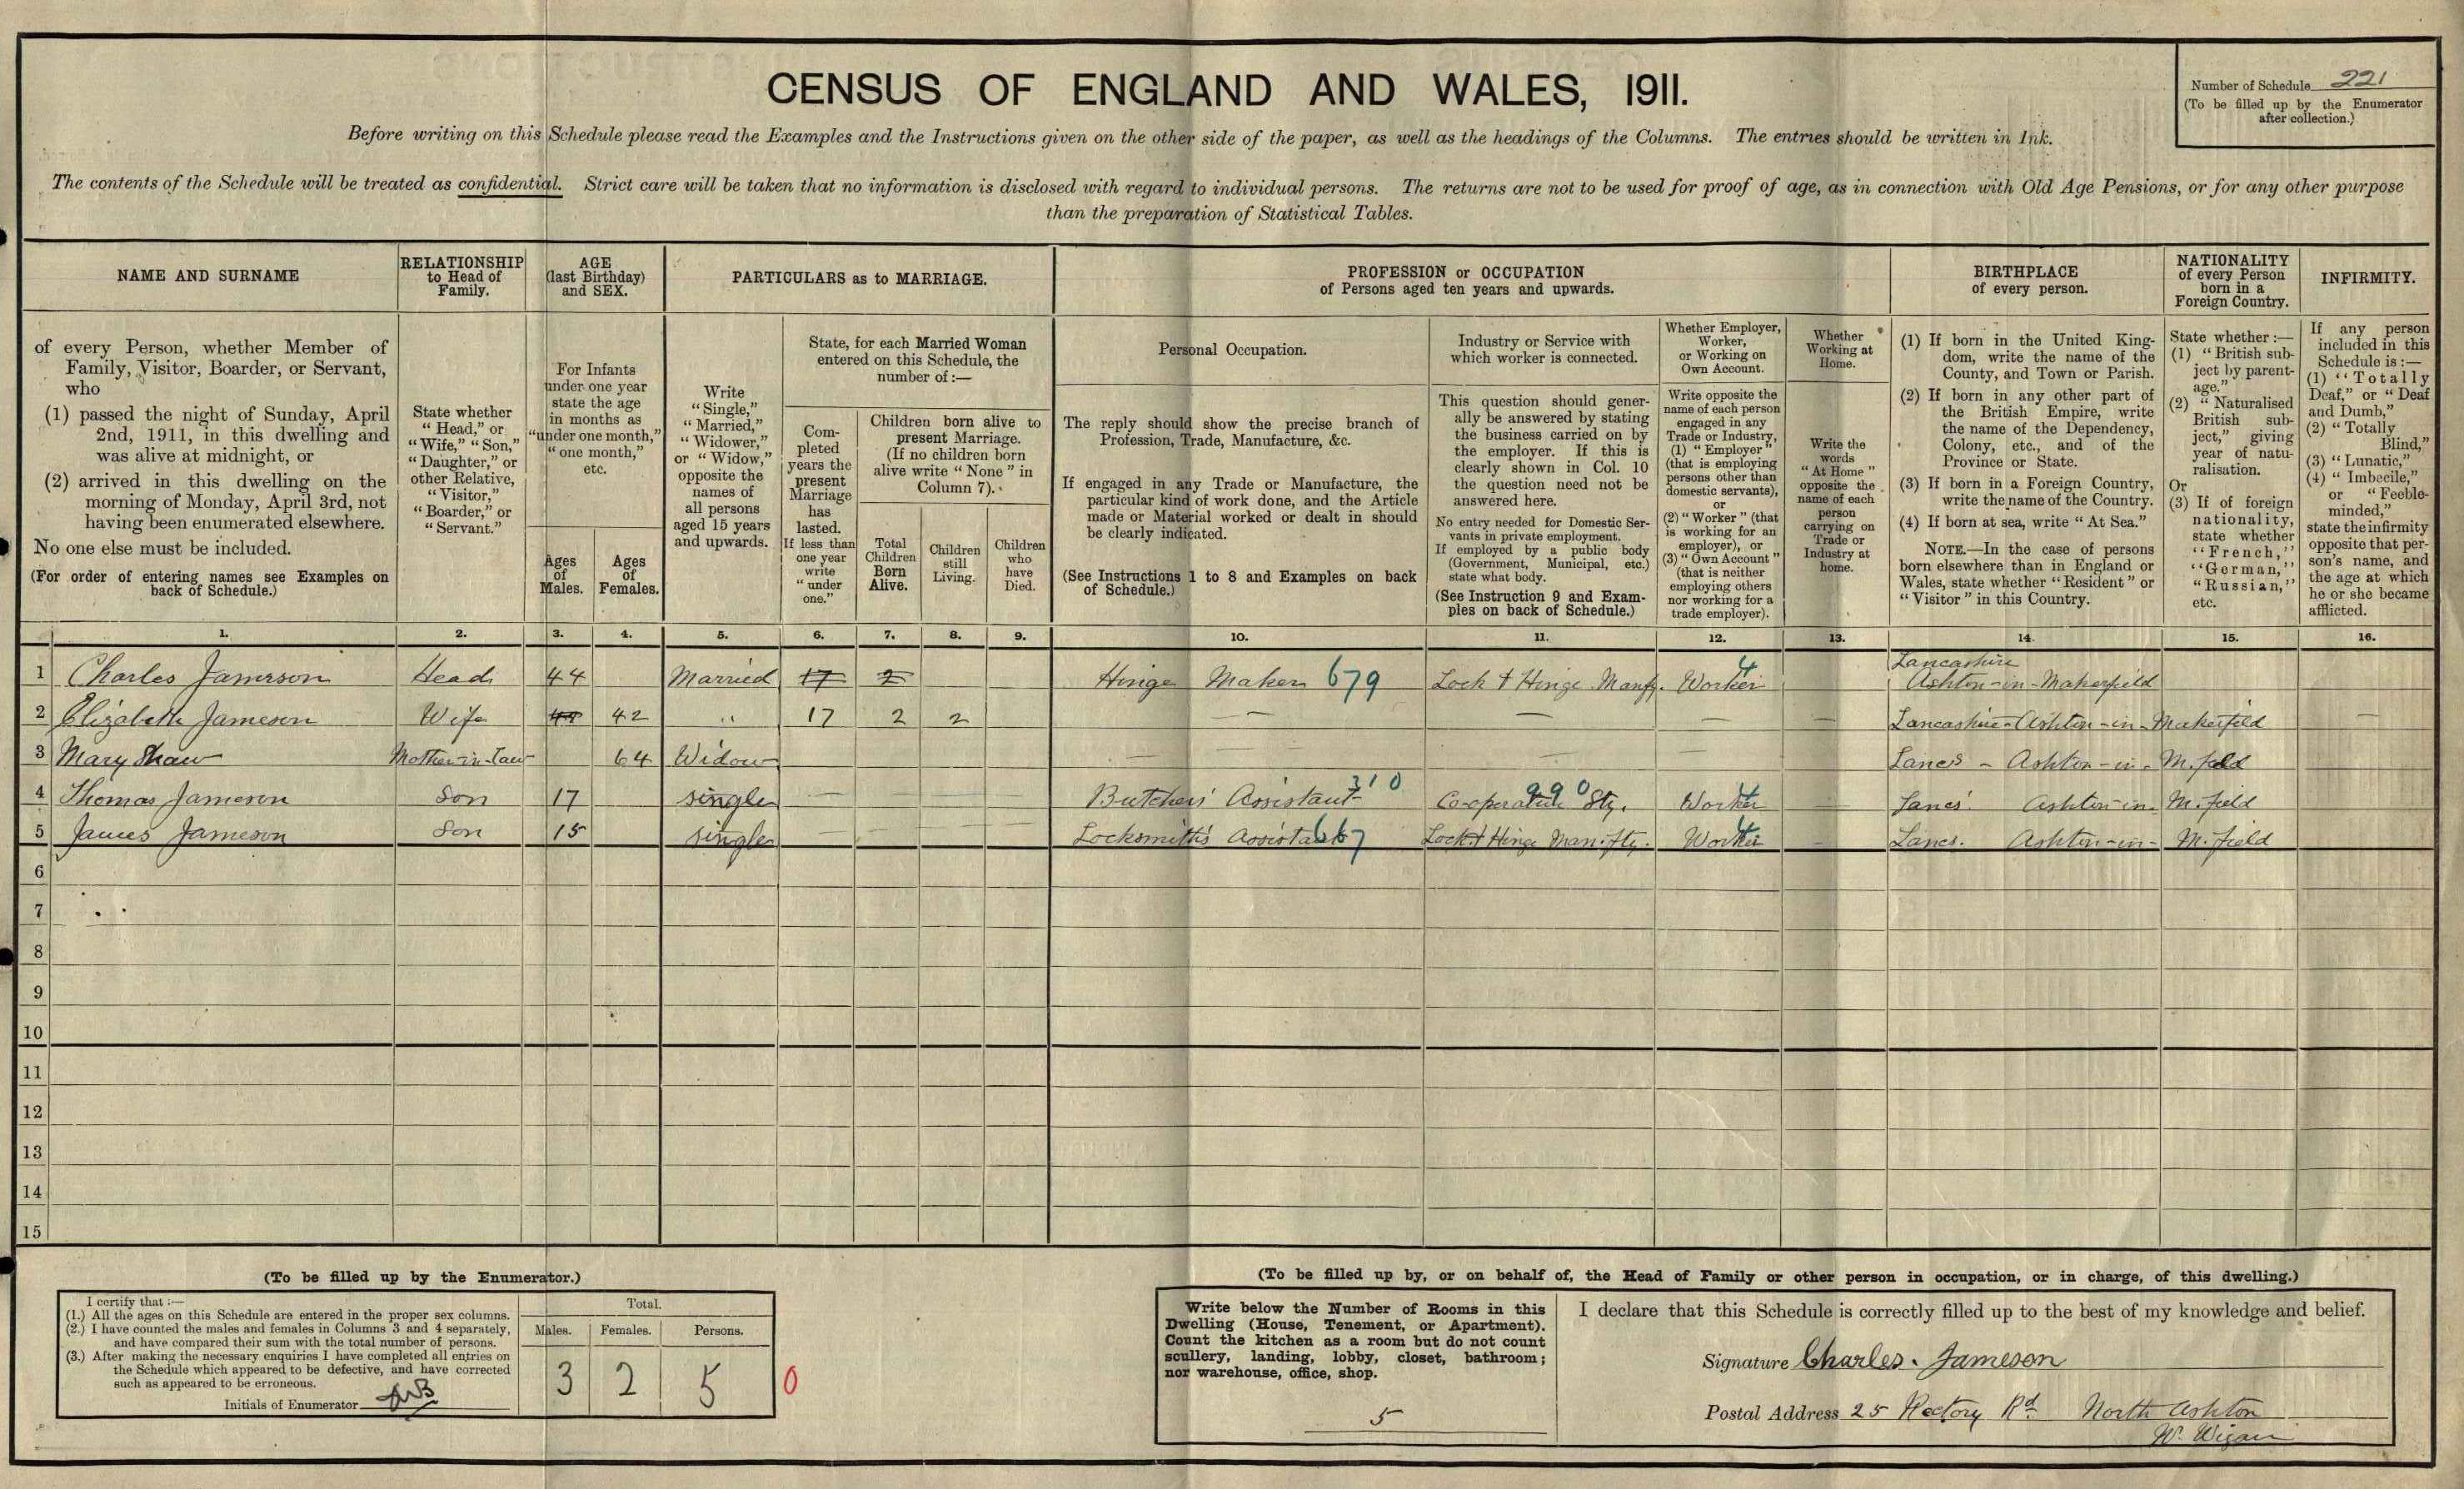 CENSUS OF ENGLAND AND WALES, 1911.
Number of Schedule 221
(To be filled up by the Enumerator
after collection.)
Before writing on this Schedule please read the Examples and the Instructions given on the other side of the paper, as well as the headings of the Columns. The entries should be written in Ink.
The contents of the Schedule will be treated as confidential. Strict care will be taken that no information is disclosed with regard to individual persons. The returns are not to be used for proof of age, as in connection with Old Age Pensions, or for any other purpose
than the preparation of Statistical Tables.
NAME AND SURNAME
of every Person, whether Member of
Family, Visitor, Boarder, or Servant,
who
(1) passed the night of Sunday, April
2nd, 1911, in this dwelling and
was alive at midnight, or
(2) arrived in this dwelling on the
morning of Monday, April 3rd, not
having been enumerated elsewhere.
No one else must be included.
(For order of entering names see Examples on
back of Schedule.)
RELATIONSHIP
to Head of
Family.
State whether
"Head," or
"Wife," "Son,"
"Daughter," or
other Relative,
"Visitor,"
"Boarder," or
"Servant."
AGE
(last Birthday)
and SEX.
For Infants
under one year
state the age
in months as
"under one month,"
"one month,"
etc.
Ages
of
Males.
Ages
of
Females.
PARTICULARS as to MARRIAGE.
Write
"Single,"
"Married,"
"Widower,"
or "Widow,"
opposite the
names of
all persons
aged 15 years
and upwards.
State, for each Married Woman
entered on this Schedule, the
number of:—
Com-
pleted
years the
present
Marriage
has
lasted.
If less than
one year
write
"under
one."
Children born alive to
present Marriage.
(If no children born
alive write "None" in
Column 7).
Total
Children
Born
Alive.
Children
still
Living.
Children
who
have
Died.
PROFESSION or OCCUPATION
of Persons aged ten years and upwards.
Personal Occupation.
The reply should show the precise branch of
Profession, Trade, Manufacture, &c.
If engaged in any Trade or Manufacture, the
particular kind of work done, and the Article
made or Material worked or dealt in should
be clearly indicated.
(See Instructions 1 to 8 and Examples on back
of Schedule.)
Industry or Service with
which worker is connected.
This question should gener-
ally be answered by stating
the business carried on by
the employer. If this is
clearly shown in Col. 10
the question need not be
answered here.
No entry needed for Domestic Ser-
vants in private employment.
If employed by a public body
(Government, Municipal, etc.)
state what body.
(See Instruction 9 and Exam-
ples on back of Schedule.)
Whether Employer,
Worker,
or Working on
Own Account.
Write opposite the
name of each person
engaged in any
Trade or Industry,
(1) "Employer"
(that is employing
persons other than
domestic servants),
or
(2) "Worker" (that
is working for an
employer), or
(3) "Own Account"
(that is neither
employing others
nor working for a
trade employer).
Whether
Working at
Home.
Write the
words
"At Home"
opposite the
name of each
person
carrying on
Trade or
Industry at
home.
BIRTHPLACE
of every person.
(1) If born in the United King-
dom, write the name of the
County, and Town or Parish.
(2) If born in any other part of
the British Empire, write
the name of the Dependency,
Colony, etc., and of the
Province or State.
(3) If born in a Foreign Country,
write the name of the Country.
(4) If born at sea, write "At Sea."
NOTE.—In the case of persons
born elsewhere than in England or
Wales, state whether "Resident" or
"Visitor" in this Country.
NATIONALITY
of every Person
born in a
Foreign Country.
State whether:—
(1) "British sub-
ject by parent-
age."
(2) "Naturalised
British sub-
ject," giving
year of natu-
ralisation.
Or
(3) If of foreign
nationality,
state whether
"French,"
"German,"
"Russian,"
etc.
INFIRMITY.
If any person
included in this
Schedule is:—
(1) "Totally
Deaf," or "Deaf
and Dumb,"
(2) "Totally
Blind,"
(3) "Lunatic,"
(4) "Imbecile,"
or "Feeble-
minded,"
state the infirmity
opposite that per-
son's name, and
the age at which
he or she became
afflicted.
1. 2. 3. 4. 5. 6. 7. 8. 9. 10. 11. 12. 13. 14. 15. 16.
1 Charles Jameson Head 44 Married 17 2 Hinge Maker 679 Lock & Hinge Manfg. Worker 4 Lancashire
Ashton-in-Makerfield
2 Elizabeth Jameson Wife 42 " 17 2 2 — — — — Lancashire Ashton-in-Makerfield —
3 Mary Shaw Mother-in-law 64 Widow — — — Lancs - Ashton-in-M.field
4 Thomas Jameson Son 17 single — Butchers' Assistant 310 Co-operative Sty. 990 Worker Lancs. Ashton-in-M.field
5 James Jameson Son 15 single — Locksmith's Assistant 667 Lock & Hinge Manifty. Worker Lancs. Ashton-in-M.field
6
7
8
9
10
11
12
13
14
15
(To be filled up by the Enumerator.)
I certify that:—
(1.) All the ages on this Schedule are entered in the proper sex columns.
(2.) I have counted the males and females in Columns 3 and 4 separately,
and have compared their sum with the total number of persons.
(3.) After making the necessary enquiries I have completed all entries on
the Schedule which appeared to be defective, and have corrected
such as appeared to be erroneous.
Initials of Enumerator
Total.
Males. Females. Persons.
3 2 5 0
(To be filled up by, or on behalf of, the Head of Family or other person in occupation, or in charge, of this dwelling.)
Write below the Number of Rooms in this
Dwelling (House, Tenement, or Apartment).
Count the kitchen as a room but do not count
scullery, landing, lobby, closet, bathroom;
nor warehouse, office, shop.
5
I declare that this Schedule is correctly filled up to the best of my knowledge and belief.
Signature Charles. Jameson
Postal Address 25 Rectory Rd North Ashton
Nr. Wigan